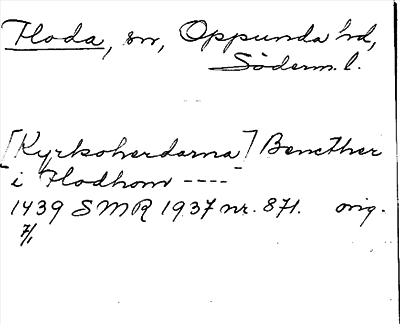 Floda, sn, Oppunda hd,
Söderm. l.
[Kyrkoherdarna] Benether
i Flodhom ----
1439 SMR 1937 nr. 871. orig.
7/1